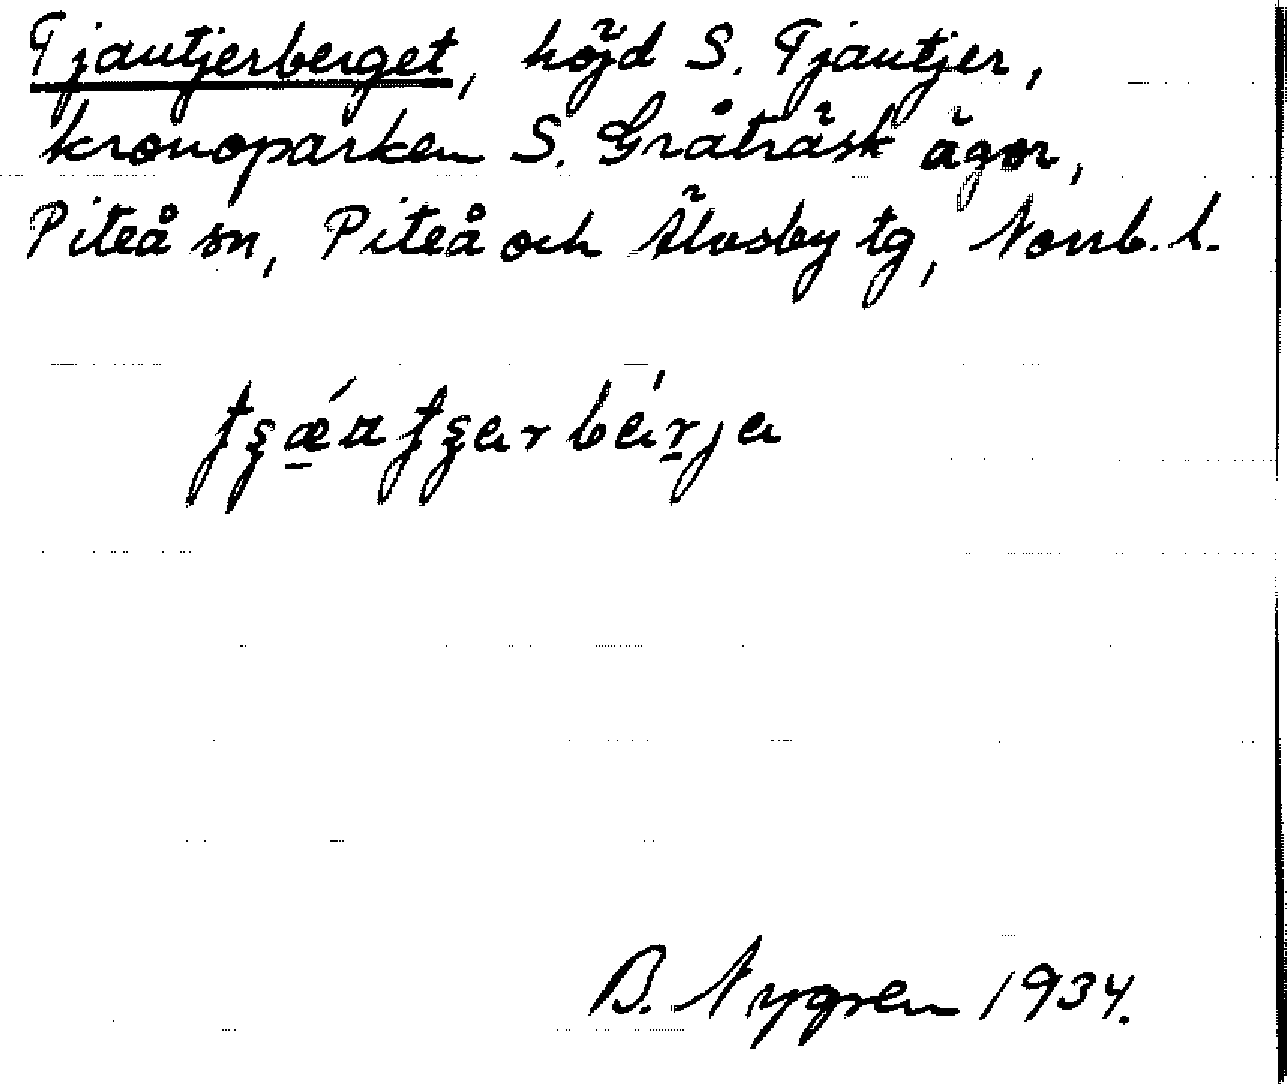 Tjautjerberget, höjd S. Tjautjer,
kronoparken S. Gråträsk ägor,
Piteå sn, Piteå och Älvsby tg, Norrb. l.
B. Nygren 1934.